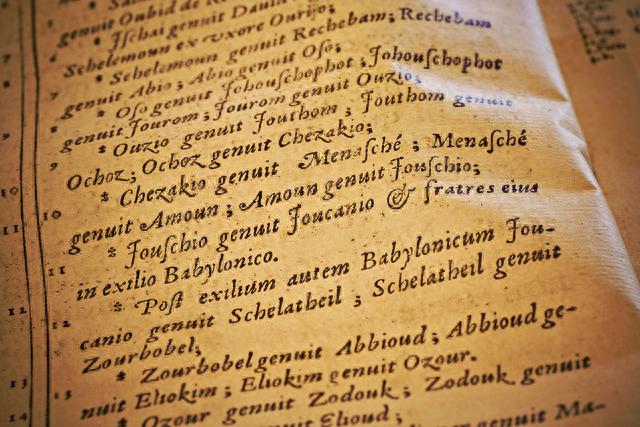 genuit Oubid de
* Jſchai genuit Dauid
Schelemoun ex vxore Ourijo;
* Schelemoun genuit Rechebam; Rechebam
genuit Abio; Abio genuit Oſo;
* Oſo genuit Johouſchophot; Johouſchophot
genuit Jourom; Jourom genuit Ouzio;
* Ouzio genuit Jouthom; Jouthom genuit
Ochoz; Ochoz genuit Chezakio;
* Chezakio genuit Menaſché; Menaſché
genuit Amoun; Amoun genuit Jouſchio;
* Jouſchio genuit Joucanio & fratres eius
in exilio Babylonico.
* Poſt exilium autem Babylonicum Jou-
canio genuit Schelatheil; Schelatheil genuit
Zourbobel;
* Zourbobel genuit Abbioud; Abbioud ge-
nuit Eliokim; Eliokim genuit Ozour.
* Ozour genuit Zodouk; Zodouk genuit
genuit Elioud;
genuit Ma-
7
8
9
10
10
11
11
12
12
13
13
14